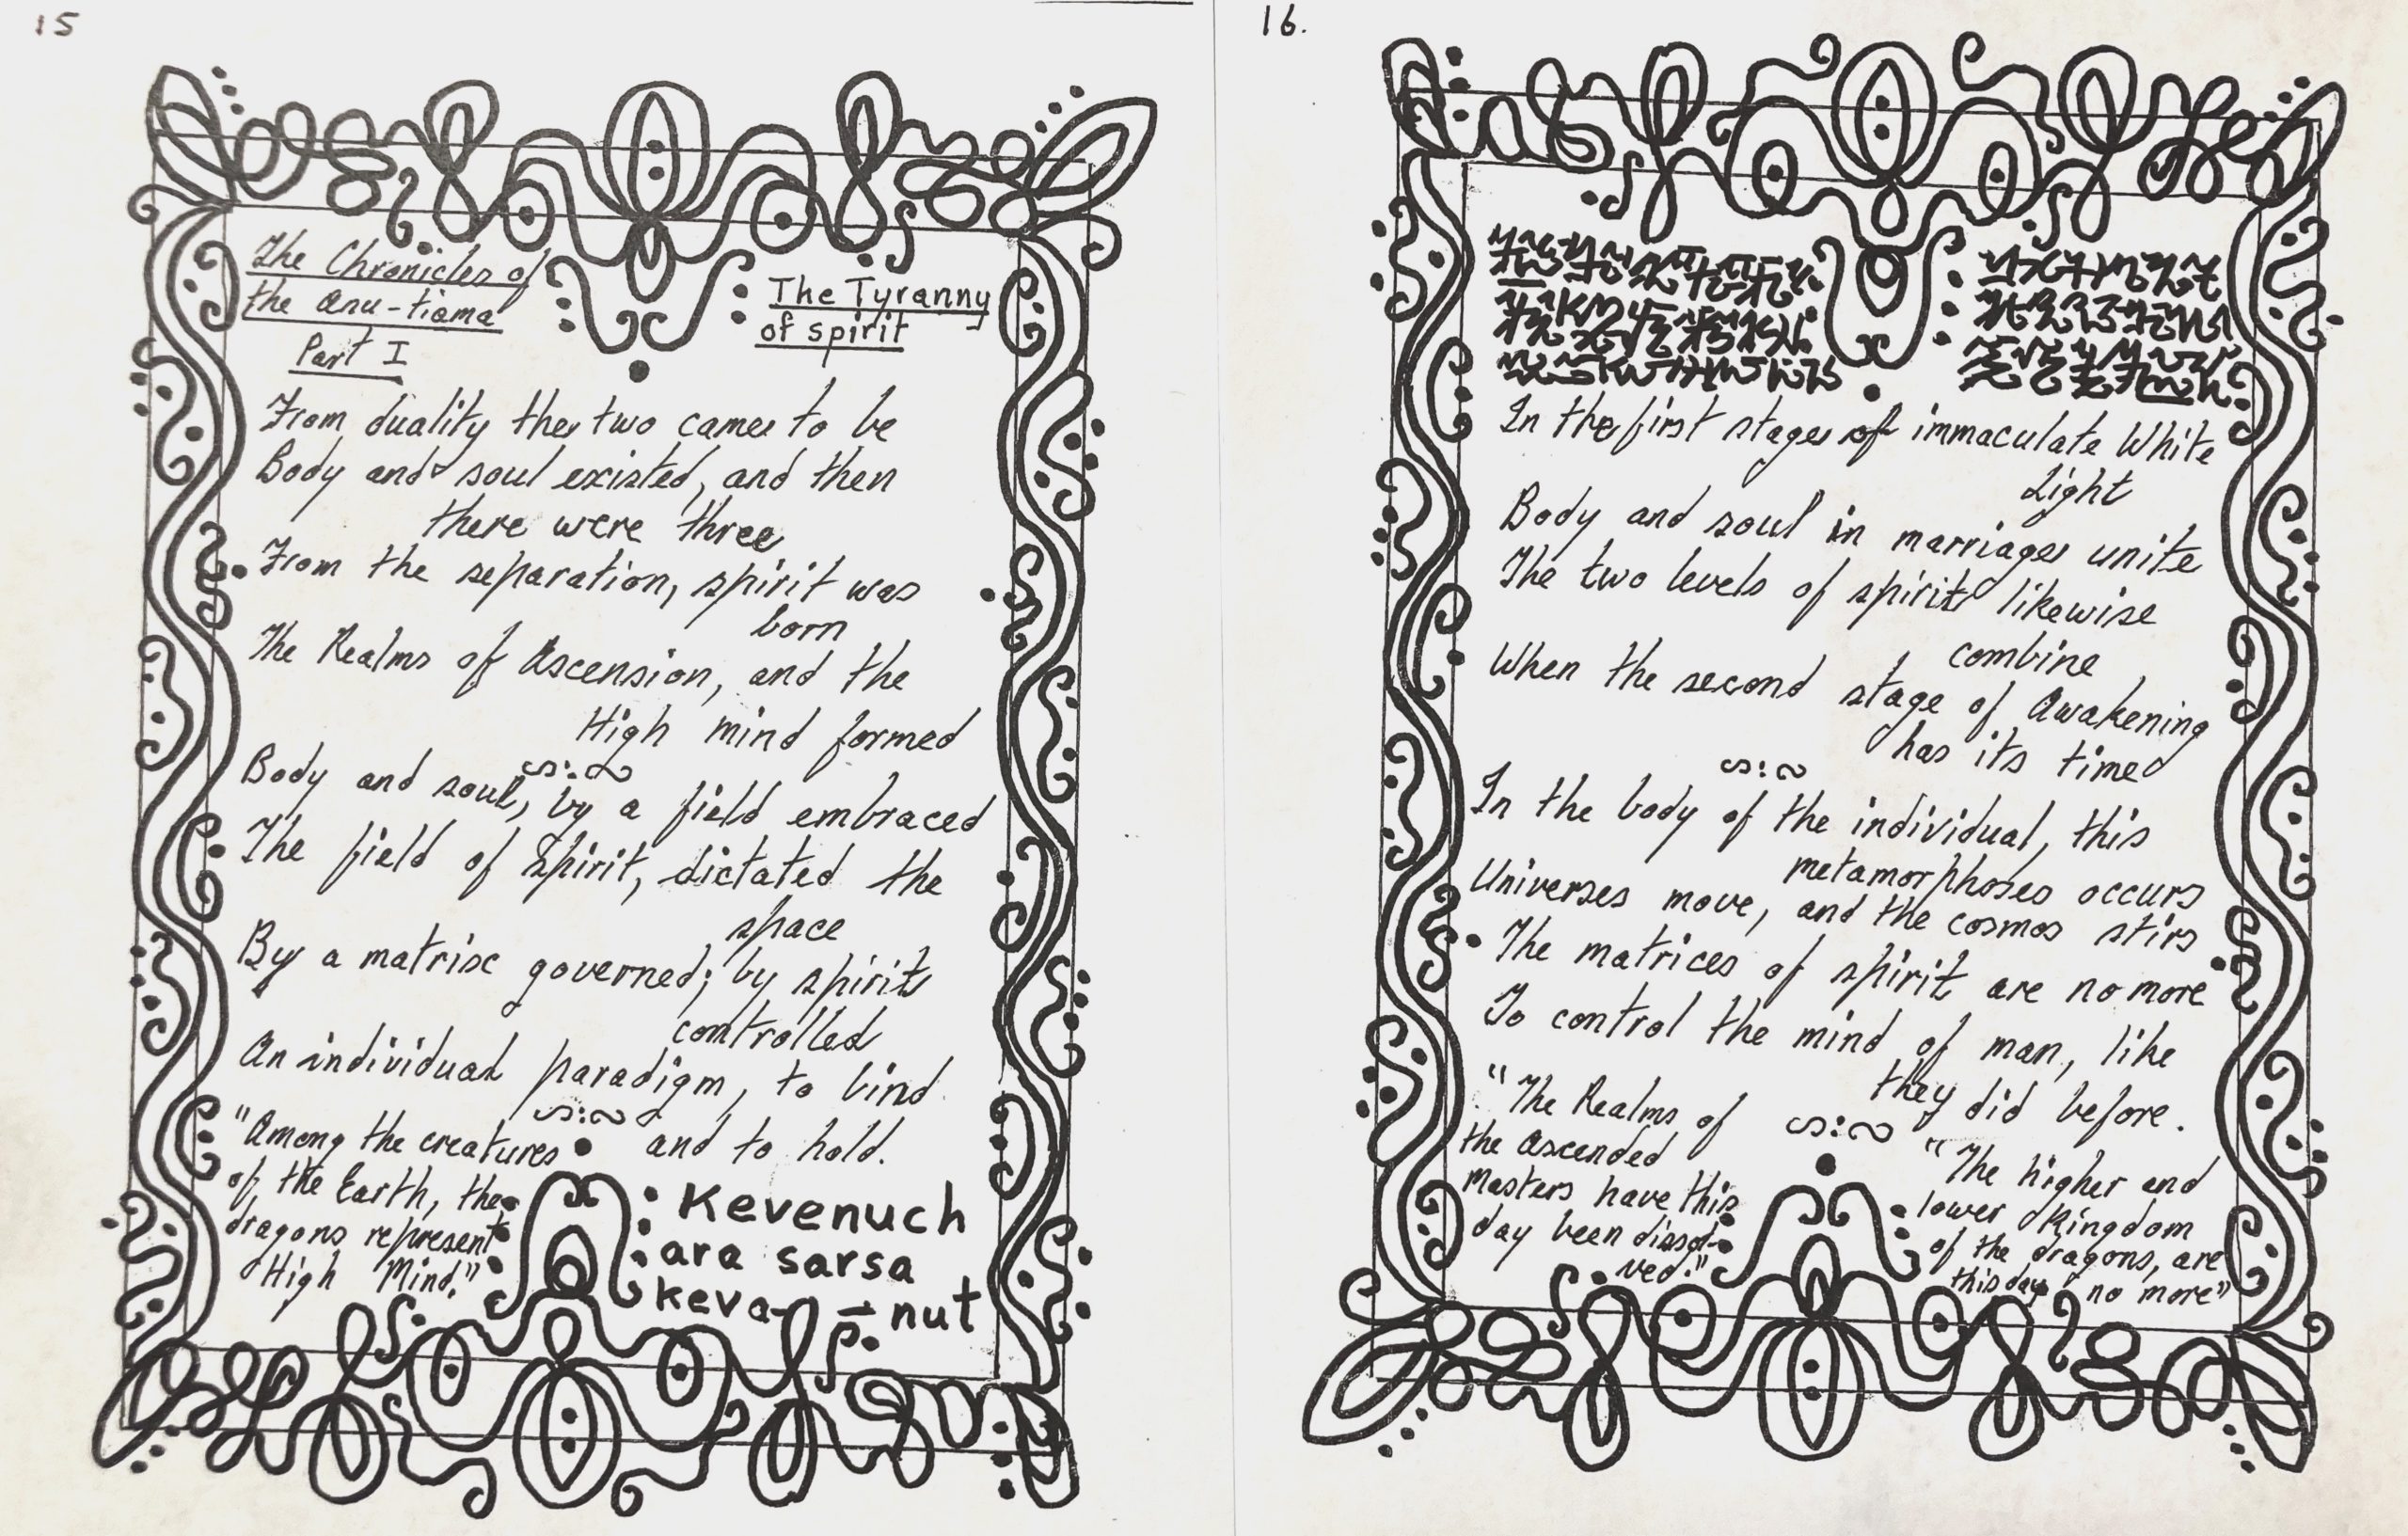 15
The Chronicles of
the Anu-tiama
Part I
The Tyranny
of spirit
From duality the two came to be
Body and soul existed, and then
there were three
From the separation, spirit was
born
The Realms of Ascension, and the
High mind formed
Body and soul, by a field embraced
The field of spirit, dictated the
space
By a matrix governed; by spirit
controlled
An individual paradigm, to bind
and to hold.
"Among the creatures
of the Earth, the
dragons represent
High Mind."
Kevenuch
ara sarsa
keva--nut
16.
In the first stage of immaculate White
Light
Body and soul in marriage unite
The two levels of spirit likewise
combine
When the second stage of Awakening
has its time
In the body of the individual, this
metamorphoses occurs
Universes move, and the cosmos stirs
The matrices of spirit are no more
To control the mind of man, like
they did before.
"The Realms of
the Ascended
Masters have this
day been dissol-
ved."
"The higher and
lower Kingdom
of the dragons, are
this day no more"